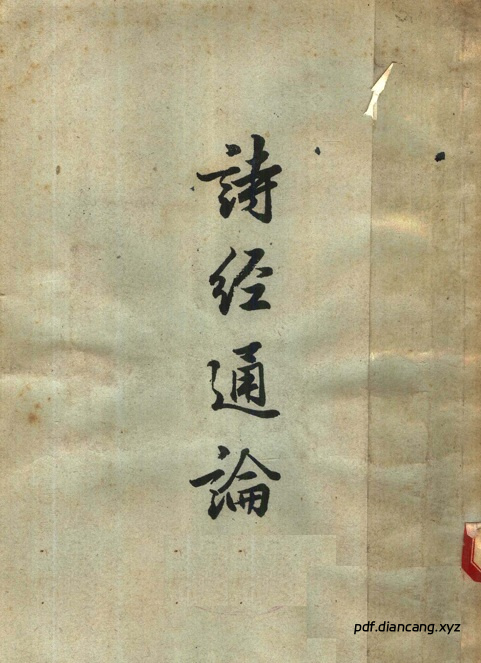 詩经通論
pdf.diancang.xyz